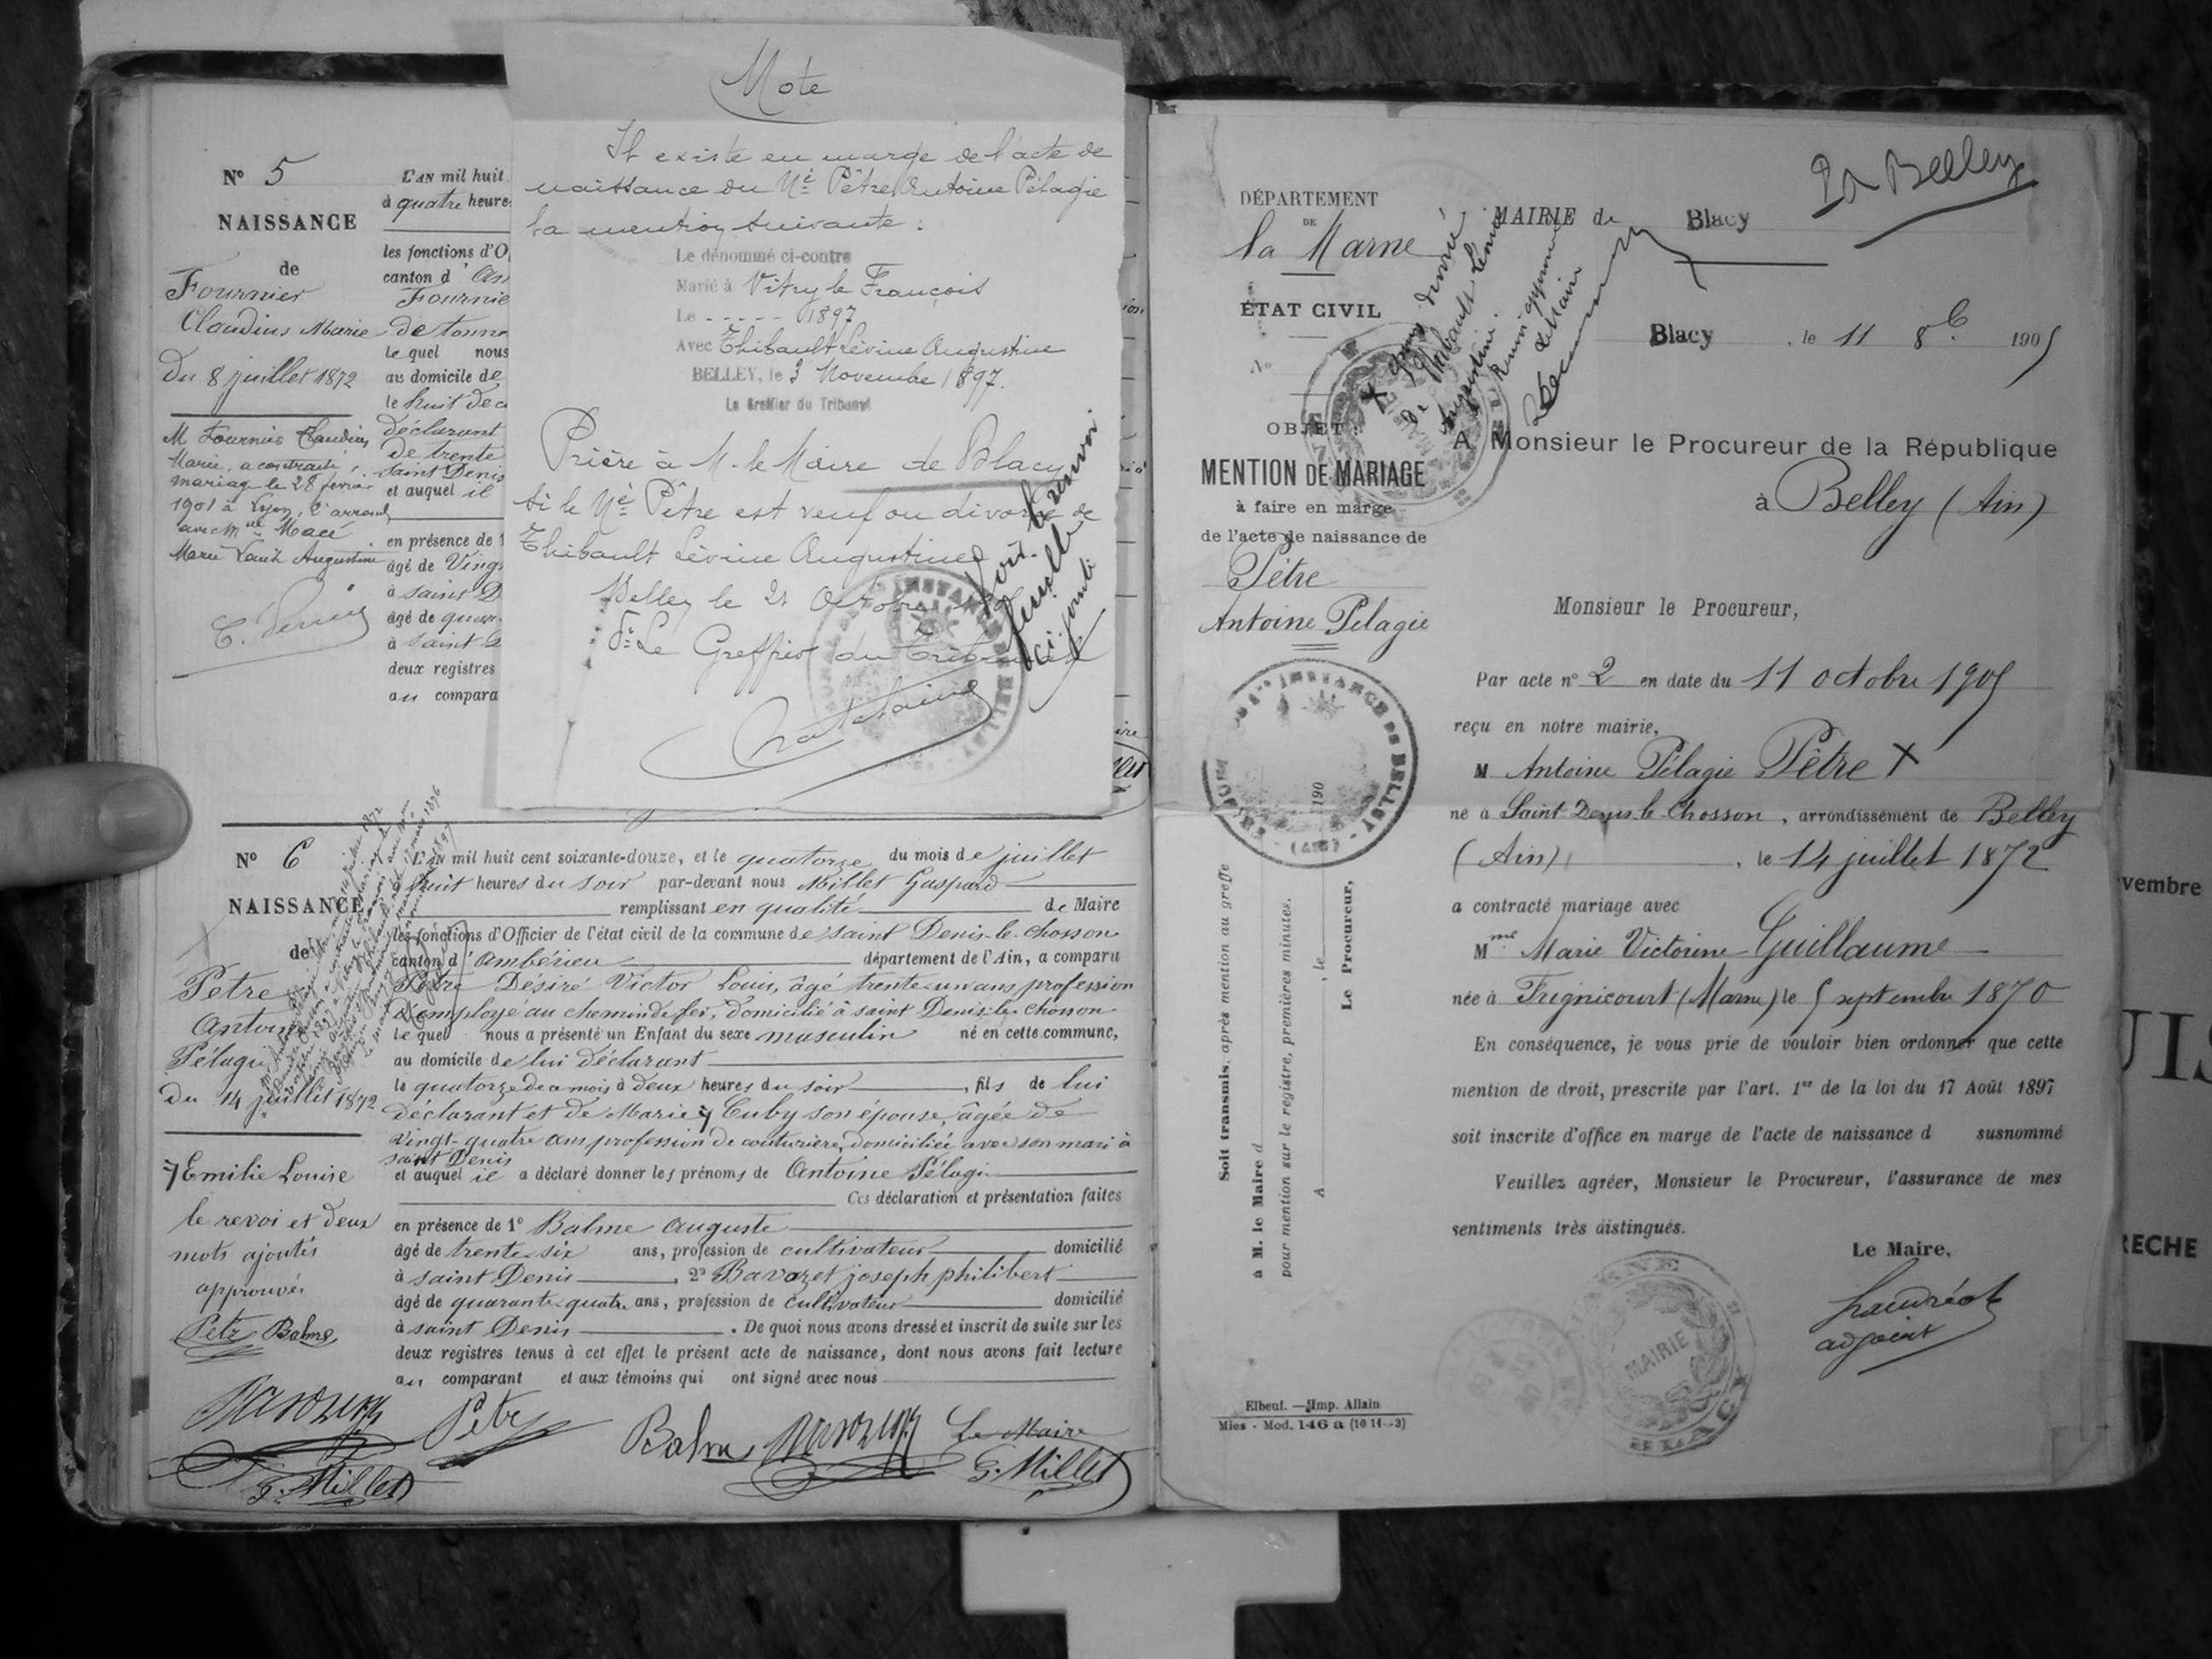 N° 5
NAISSANCE
de
Fournier
Claudius Marie
du 8 juillet 1872
M Fournier Claudius
Marie, a contracté
mariage le 28 février
1901 à Lyon,
avec Mlle Macé
Marie Augustine
L'AN mil huit
à quatre heure
les fonctions d'O
canton d'
Fournie
de tonne
le quel nous
au domicile de
le huit de c
déclarant
de trente
saint Denis
et auquel il
en présence de 1
âgé de Vingt
à saint D
âgé de quar
à saint
deux registres
au compara
Note
Il existe en marge de l'acte de
naissance du Né Pêtre Antoine Pélagie
la mention suivante :
Le dénommé ci-contre
Marié à Vitry le François
Le - - - - - 1897
Avec Thibault Lévine Augustine
BELLEY, le 3 Novembre 1897.
Le Greffier du Tribunal
Prière à M. le Maire de Blacy
si le Né Pêtre est veuf ou divorcé de
Thibault Lévine Augustine
Belley le 21 Octobre
Pr Le Greffier du Tribunal
Voir le renvoi
feuille
ci-jointe
N° 6
NAISSANCE
de
Petre
Antoine
Pélagie
du 14 juillet 1872
Emilie Louise
le revoi et deux
mots ajoutés
approuvés
Petr Balme
L'AN mil huit cent soixante-douze, et le quatorze du mois de juillet
à huit heures du soir par-devant nous Millet Gaspard
remplissant en qualité de Maire
les fonctions d'Officier de l'état civil de la commune de saint Denis-le-chosson
canton d'ambérieu département de l'Ain, a comparu
Petre Désiré Victor Louis, âgé trente un ans profession
d'employé au chemin de fer, domicilié à saint Denis-le-chosson
le quel nous a présenté un Enfant du sexe masculin né en cette commune,
au domicile de lui déclarant
le quatorze de ce mois à deux heures du soir, fils de lui
déclarant et de Marie Cuby son épouse, âgée de
vingt-quatre ans profession de couturière, domiciliée avec son mari à
saint Denis
et auquel il a déclaré donner les prénoms de Antoine Pélagie
Ces déclaration et présentation faites
en présence de 1° Balme Auguste
âgé de trente-six ans, profession de cultivateur domicilié
à saint Denis, 2° Bavozet joseph philibert
âgé de quarante-quatre ans, profession de cultivateur domicilié
à saint Denis. De quoi nous avons dressé et inscrit de suite sur les
deux registres tenus à cet effet le présent acte de naissance, dont nous avons fait lecture
au comparant et aux témoins qui ont signé avec nous
Petre
Balme
Le Maire
G. Millet
G. Millet
DÉPARTEMENT
DE
la Marne
ÉTAT CIVIL
N°
OBJET :
MENTION DE MARIAGE
à faire en marge
de l'acte de naissance de
Pêtre
Antoine Pélagie
TRIBUNAL DE 1re INSTANCE DE BELLEY (AIN)
Soit transmis, après mention au greffe
à M. le Maire d
pour mention sur le registre, premières minutes.
A , le 190
Le Procureur,
Elbeuf. — Imp. Allain
Mios - Mod. 146 a (10 11--3)
MAIRIE de Blacy
Belley
Blacy, le 11 8b 1905
divorcé
de Thibault Lévine
Augustine.
Le Maire
A Monsieur le Procureur de la République
à Belley (Ain)
Monsieur le Procureur,
Par acte n° 2 en date du 11 octobre 1905
reçu en notre mairie,
M Antoine Pélagie Pêtre X
né à Saint-Denis-le-Chosson, arrondissement de Belley
(Ain), le 14 juillet 1872
a contracté mariage avec
Mme Marie Victorine Guillaume
née à Frignicourt (Marne) le 5 septembre 1870
En conséquence, je vous prie de vouloir bien ordonner que cette
mention de droit, prescrite par l'art. 1er de la loi du 17 Août 1897
soit inscrite d'office en marge de l'acte de naissance d susnommé
Veuillez agréer, Monsieur le Procureur, l'assurance de mes
sentiments très distingués.
Le Maire,
adjoint
MAIRIE
vembre
UIS
RECHE